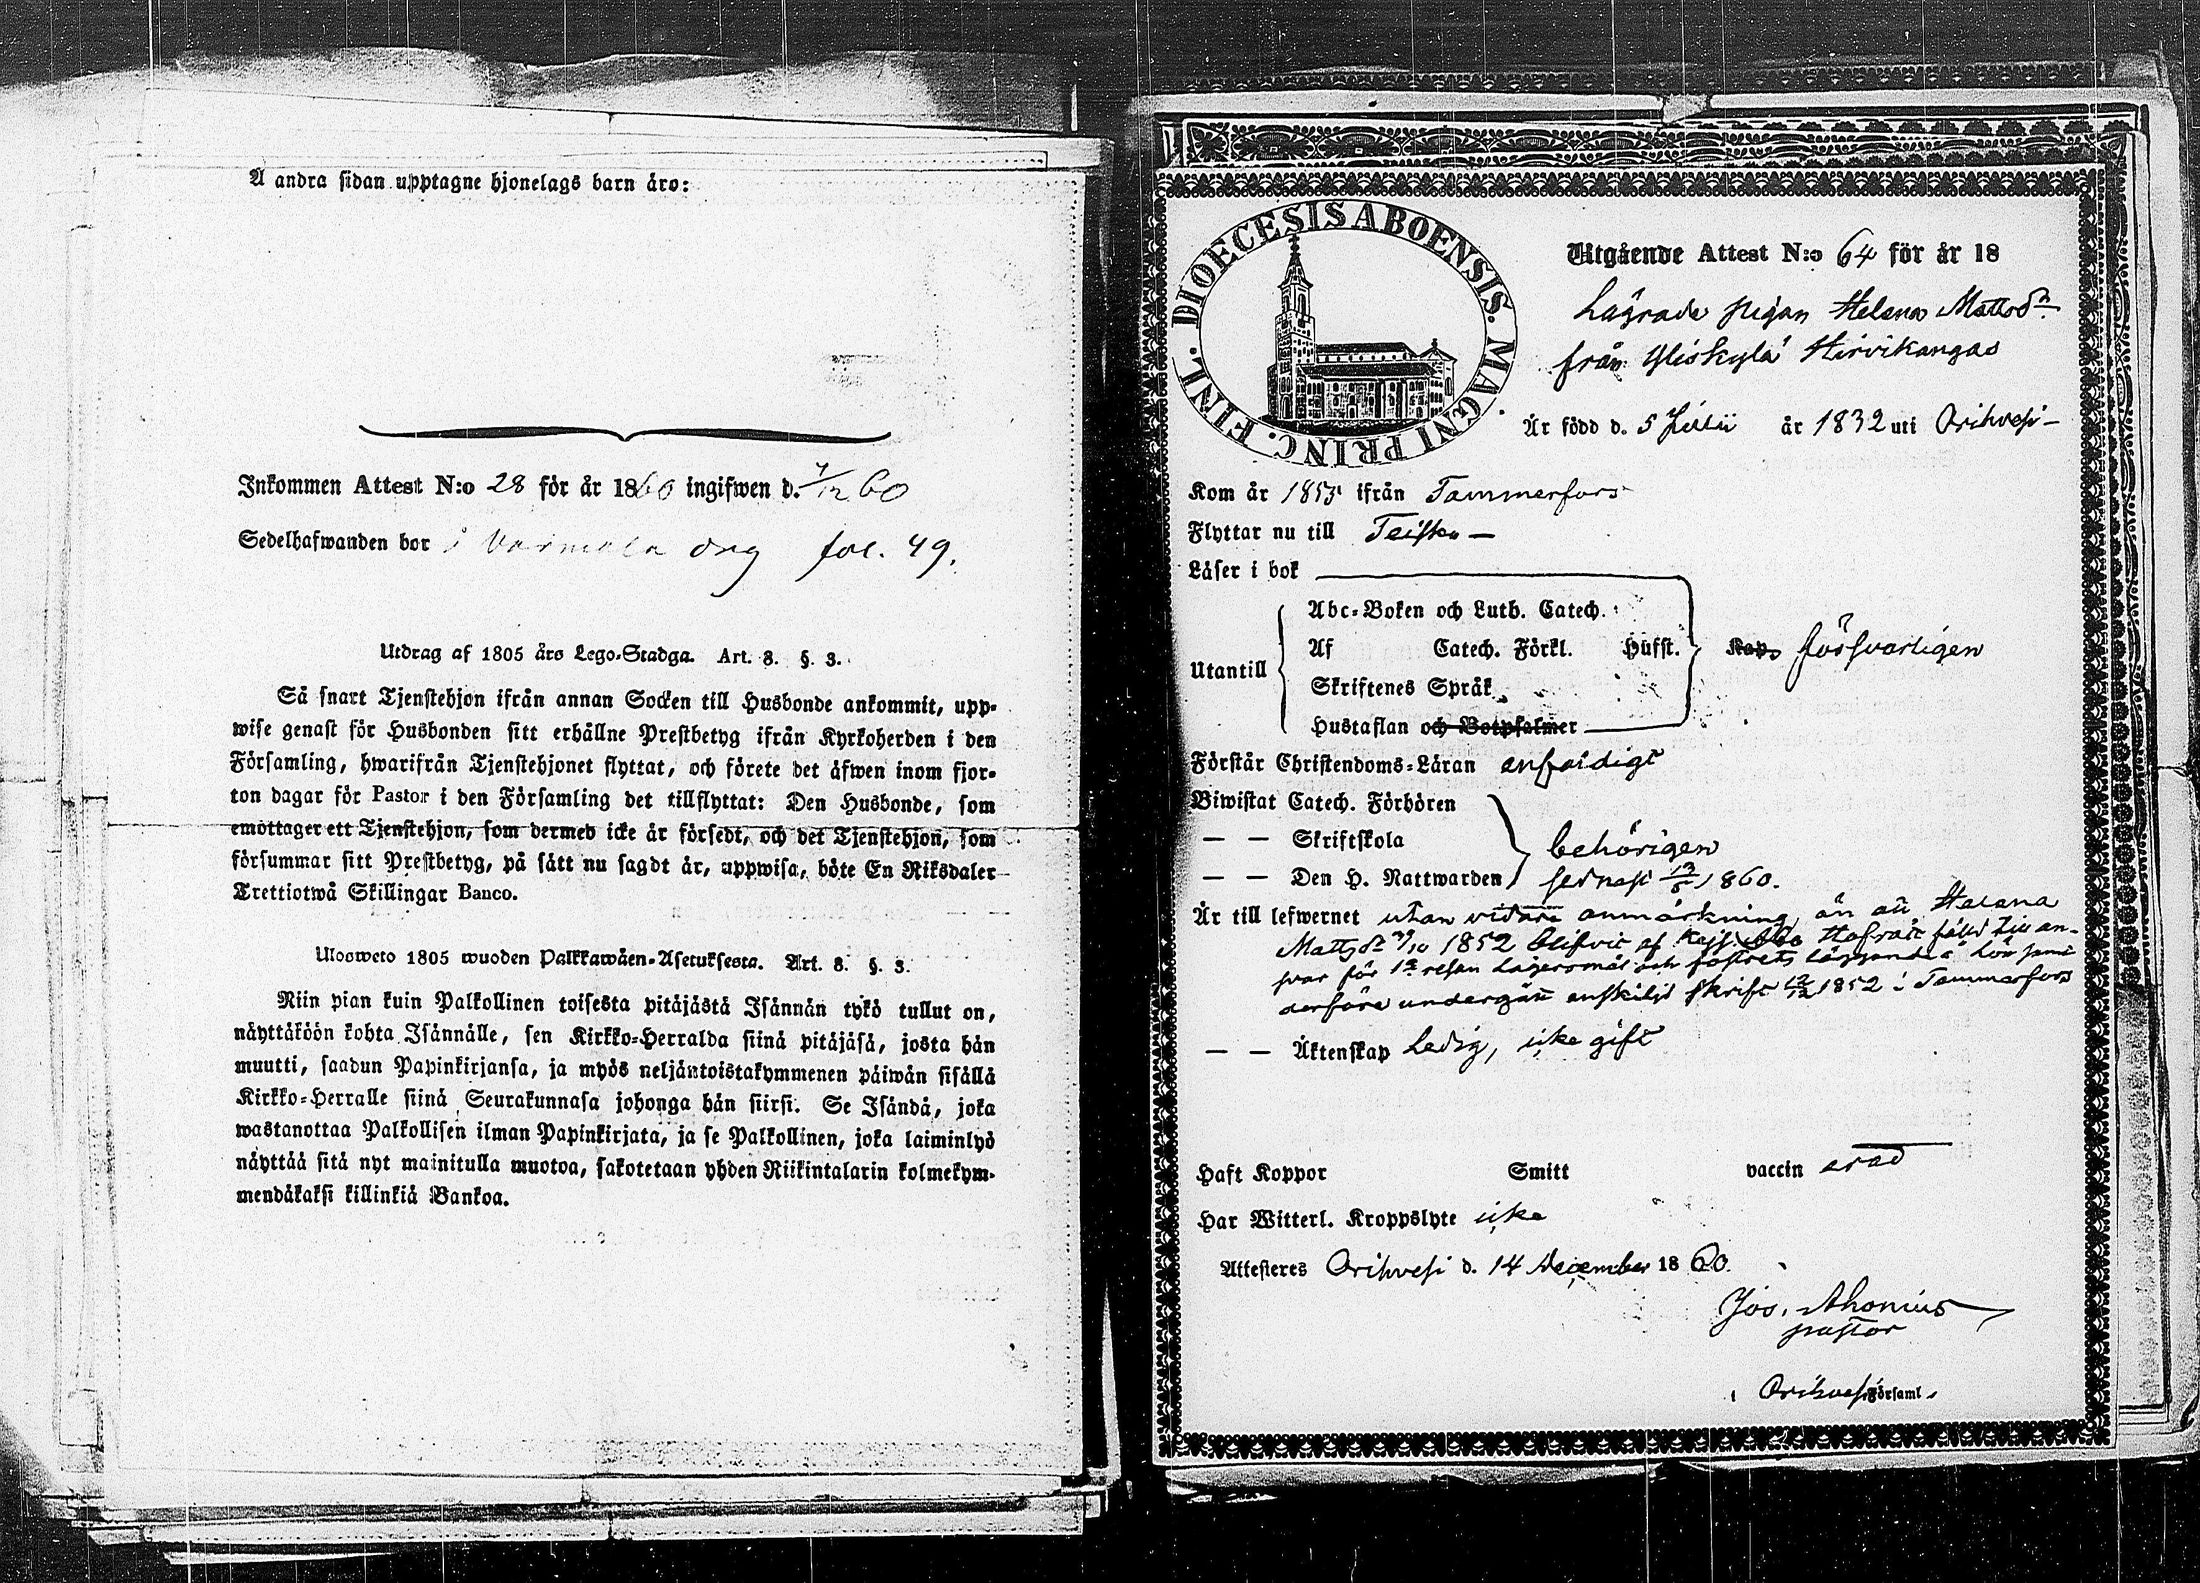 Å andra sidan upptagne hjonelags barn äro:
Inkommen Attest N:o 28 för år 1860 ingifwen d. /12 60
Sedelhafwanden bor i fol. 49.
Utdrag af 1805 års Lego-Stadga. Art. 8. §. 3.
Så snart Tjenstehjon ifrån annan Socken till Husbonde ankommit, upp-
wise genast för Husbonden sitt erhållne Prestbetyg ifrån Kyrkoherden i den
Församling, hwarifrån Tjenstehjonet flyttat, och förete det äfwen inom fjor-
ton dagar för Pastor i den Församling det tillflyttat: Den Husbonde, som
emottager ett Tjenstehjon, som dermed icke är försedt, och det Tjenstehjon, som
försummar sitt Prestbetyg, på sätt nu sagdt är, uppwisa, böte En Riksdaler
Trettiotwå Skillingar Banco.
Ulosweto 1805 wuoden Palkkawäen-Asetuksesta. Art. 8. §. 3.
Niin pian kuin Palkollinen toisesta pitäjästä Isännän tykö tullut on,
näyttäköön kohta Isännälle, sen Kirkko-Herralda siinä pitäjäsä, josta hän
muutti, saadun Papinkirjansa, ja myös neljäntoistakymmenen päiwän sisällä
Kirkko-Herralle siinä Seurakunnasa johonga hän siirsi. Se Isändä, joka
wastanottaa Palkollisen ilman Papinkirjata, ja se Palkollinen, joka laiminlyö
näyttää sitä nyt mainitulla muotoa, sakotetaan yhden Riikintalarin kolmekym-
mendäkaksi killinkiä Bankoa.
DIOECESIS ABOENSIS. MAGNI PRINC. FINL.
Utgående Attest N:o 64 för år 18
Lägrade pigan Helena Mattsdr
från Yliskylä Hirvikangas
Är född d. 5 Julii år 1832 uti Orihvesi
Kom år 1853 ifrån Tammerfors
Flyttar nu till Teisko
Läser i bok
Utantill
Abc-Boken och Luth. Catech.
Af Catech. Förkl. Husst. försvarligen
Skriftenes Språk
Hustaflan och Botpsalmer
Förstår Christendoms-Läran enfaldigt
Biwistat Catech. Förhören
— — Skriftskola behörigen
— — Den H. Nattwarden senast 1860.
Är till lefwernet utan vidare anmärkning, än att Helena
Mattsdr 1852 blifvit af Kejs. Hofrätt fälld till an-
svar för 1a resan lägersmål och fostrets läggande å lön samt
derföre undergått enskildt skrift 1852 i Tammerfors
— — Äktenskap Ledig, icke gift
Haft Koppor Smitt vaccin erad
Har Witterl. Kroppslyte icke
Attesteres Orihvesi d. 14 December 1860.
Jos. Ahonius
pastor
i Orihvesi Församl.